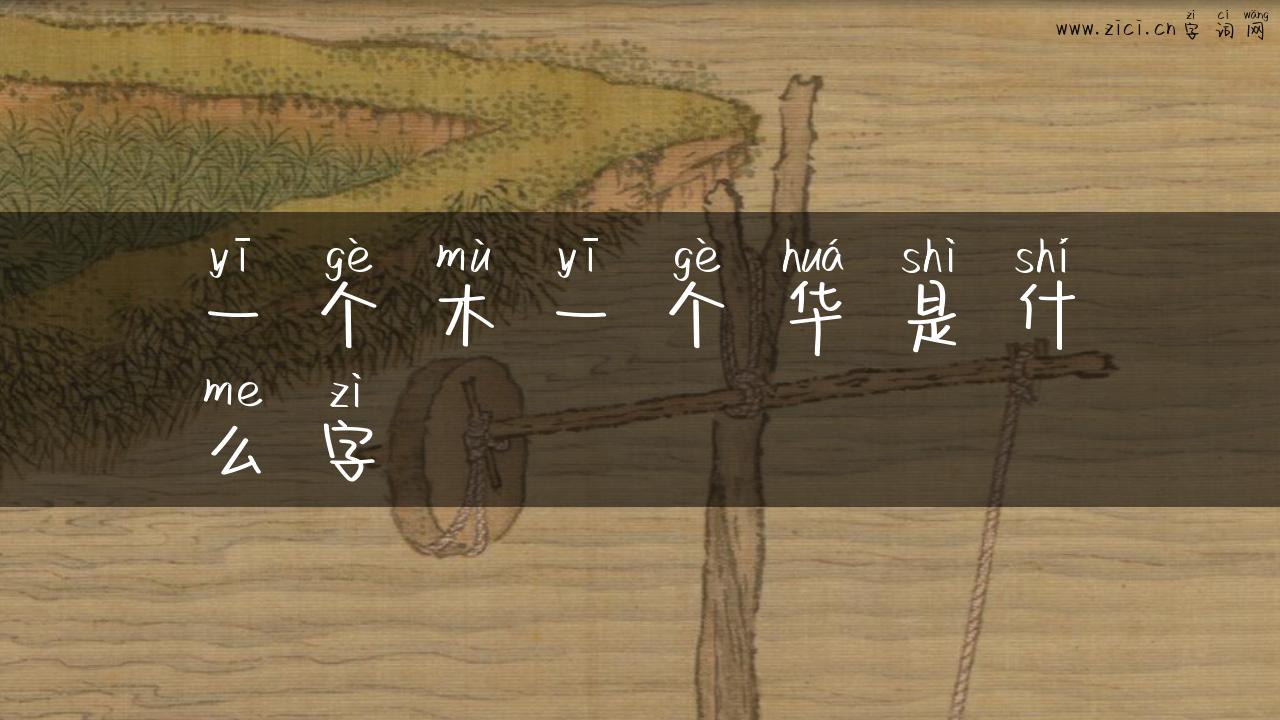 zì cí wǎng
www.zici.cn 字词网
yī gè mù yī gè huá shì shí
一个木一个华是什
me zì
么字